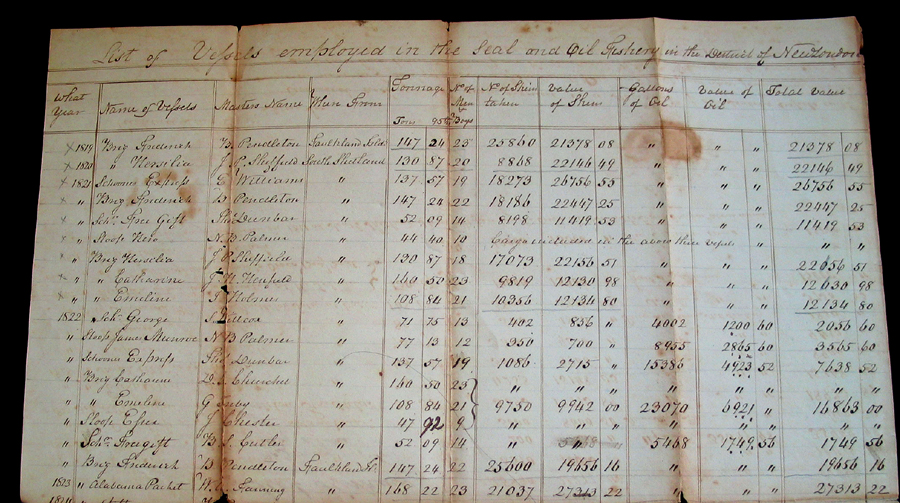 List of Vessels employed in the Seal and Oil Fishery in the District of New London
What Year Name of Vessels Masters Name When From Tonnage Tons 95ths No of Men & Boys No of Skins taken Value of Skins Gallons of Oil Value of Oil Total Value
1819 Brig Frederick B. Pendleton Faulkland Islds 147 24 23 25860 21378 08 " " " 21378 08
1820 " Hersilia J. P. Sheffield South Shetland 130 87 20 8868 22146 49 " " " 22146 49
1821 Schooner Express E. Williams " 137 57 19 18273 26756 55 " " " 26756 55
" Brig Frederick B. Pendleton " 147 24 22 18186 22447 25 " " " 22447 25
" Schr. Free Gift Dunbar " 52 09 14 8198 11419 53 " " " 11419 53
" Sloop Hero N. B. Palmer " 44 40 10 Cargo included in the above three Vessels " " " "
" Brig Hersilia J. P. Sheffield " 130 87 18 17073 22156 51 " " " 51
" " Catharine J. Henfield " 160 50 23 9819 12130 98 " " " 98
" " Emeline J. Holmes " 108 84 21 10356 12134 80 " " " 12134 80
1822 Schr. George " 71 75 13 402 836 " 4002 1200 60 2056 60
" Sloop James Monroe N. B. Palmer " 77 13 12 350 700 " 8955 2865 60 3565 60
" Schooner Express Dunbar " 137 57 19 1086 2715 " 15386 4923 52 7638 52
" Brig Catharine " 160 50 25 " " " " " "
" " Emeline " 108 84 21 9750 9942 00 23070 6921 " 16863 00
" Sloop J. Chester " 47 92 9 " " " " " "
" Schr. Freegift B. J. Cutler " 52 09 14 " " 5468 1749 56 1749 56
" Brig Frederick B. Pendleton Faulkland Is. 147 24 22 25600 19656 16 " " " 19656 16
1823 " Alabama Packet W. A. Fanning " 168 22 23 21037 27313 22 " " " 27313 22